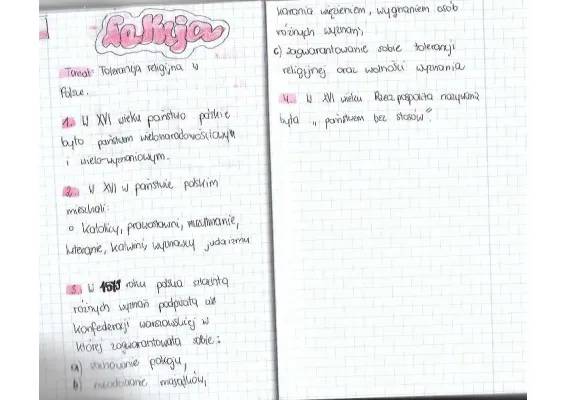 Lekcja
Temat: Tolerancja religijna w
Polsce.
1. W XVI wieku państwo polskie
było państwem wielonarodowościowym
i wielo-wyznaniowym.
2. W XVI w państwie polskim
mieszkali:
o katolicy, prawosławni, muzułmanie,
luteranie, kalwini, wyznawcy judaizmu
3. W 1573 roku polska szlachta
różnych wyznań podpisała akt
konfederacji warszawskiej w
której zagwarantowała sobie:
a) zachowanie pokoju,
b) majątków,
karania więzieniem, wygnaniem osób
różnych wyznań,
c) zagwarantowanie sobie tolerancji
religijnej oraz wolności wyznania
4. W XVI wieku Rzeczpospolita nazywana
była „państwem bez stosów".